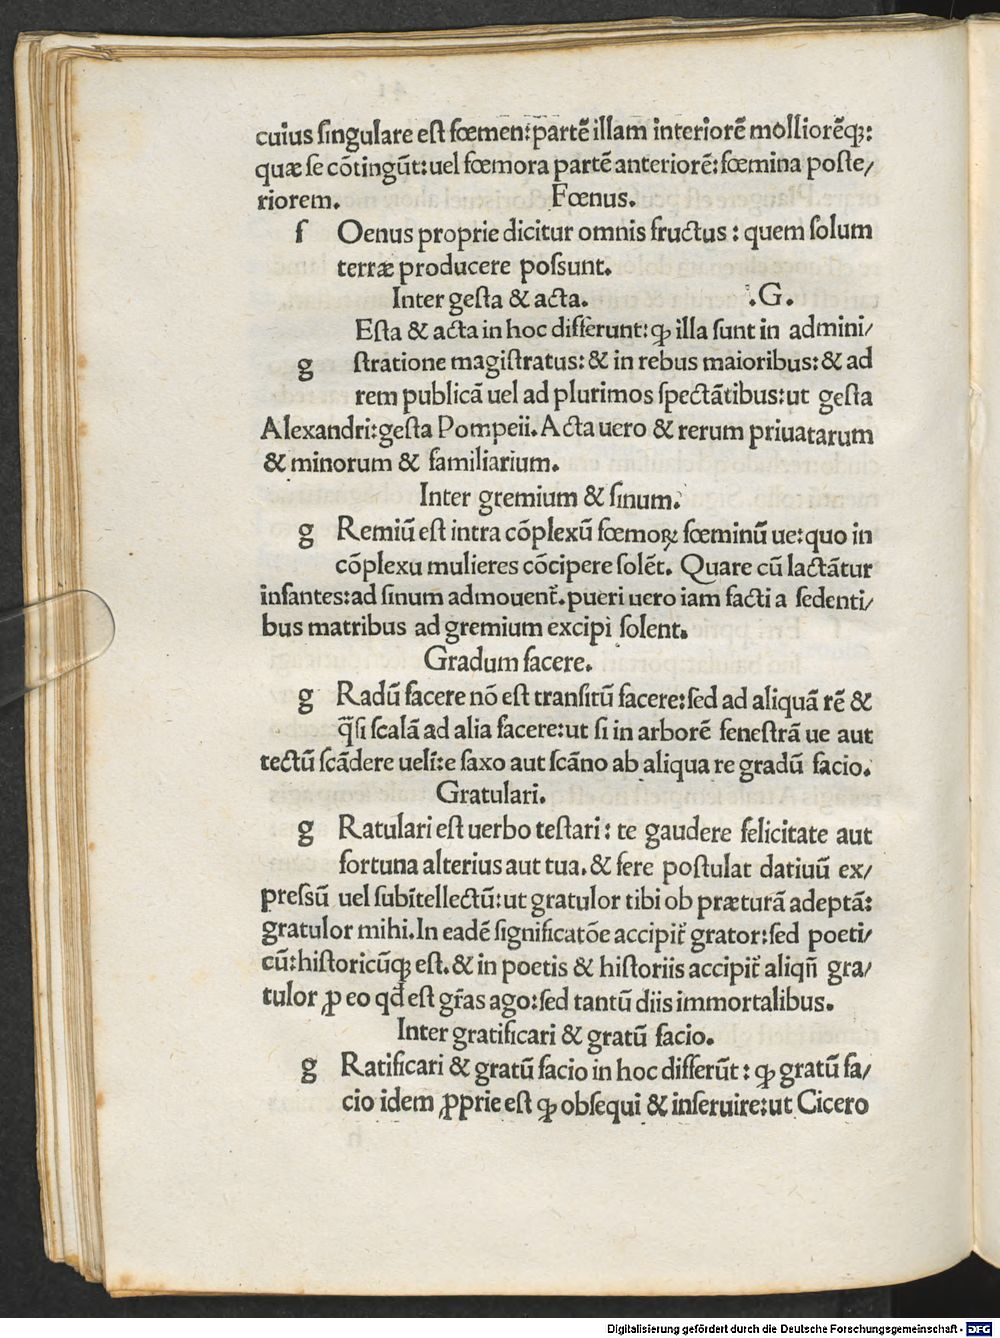 cuius ſingulare eſt fœmen: partē illam interiorē molliorēq;:
quæ ſe cōtingūt: uel fœmora partē anteriorē: fœmina poſte/
riorem. Fœnus.
f Oenus proprie dicitur omnis fructus: quem ſolum
terræ producere poſsunt.
Inter geſta & acta. .G.
Eſta & acta in hoc differunt: ꝙ illa ſunt in admini/
g ſtratione magiſtratus: & in rebus maioribus: & ad
rem publicā uel ad plurimos ſpectātibus: ut geſta
Alexandri: geſta Pompeii. Acta uero & rerum priuatarum
& minorum & familiarium.
Inter gremium & ſinum.
g Remiū eſt intra cōplexū fœmoꝝ fœminū ue: quo in
cōplexu mulieres cōcipere ſolēt. Quare cū lactātur
infantes: ad ſinum admouent̃. pueri uero iam facti a ſedenti/
bus matribus ad gremium excipi ſolent.
Gradum facere.
g Radū facere nō eſt tranſitū facere: ſed ad aliquā rē &
q̄ſi ſcalā ad alia facere: ut ſi in arborē feneſtrā ue aut
tectū ſcādere uelī: e ſaxo aut ſcāno ab aliqua re gradū facio.
Gratulari.
g Ratulari eſt uerbo teſtari: te gaudere felicitate aut
fortuna alterius aut tua. & fere poſtulat datiuū ex/
preſsū uel ſubītellectū: ut gratulor tibi ob præturā adeptā:
gratulor mihi. In eadē ſignificatōe accipit̃ grator: ſed poeti/
cū: hiſtoricūq; eſt. & in poetis & hiſtoriis accipit̃ aliqñ gra/
tulor ꝓ eo qđ eſt gr̃as ago: ſed tantū diis immortalibus.
Inter gratificari & gratū facio.
g Ratificari & gratū facio in hoc differūt: ꝙ gratū fa/
cio idem ꝓprie eſt ꝙ obſequi & inſeruire: ut Cicero
Digitalisierung gefördert durch die Deutsche Forschungsgemeinschaft - DFG